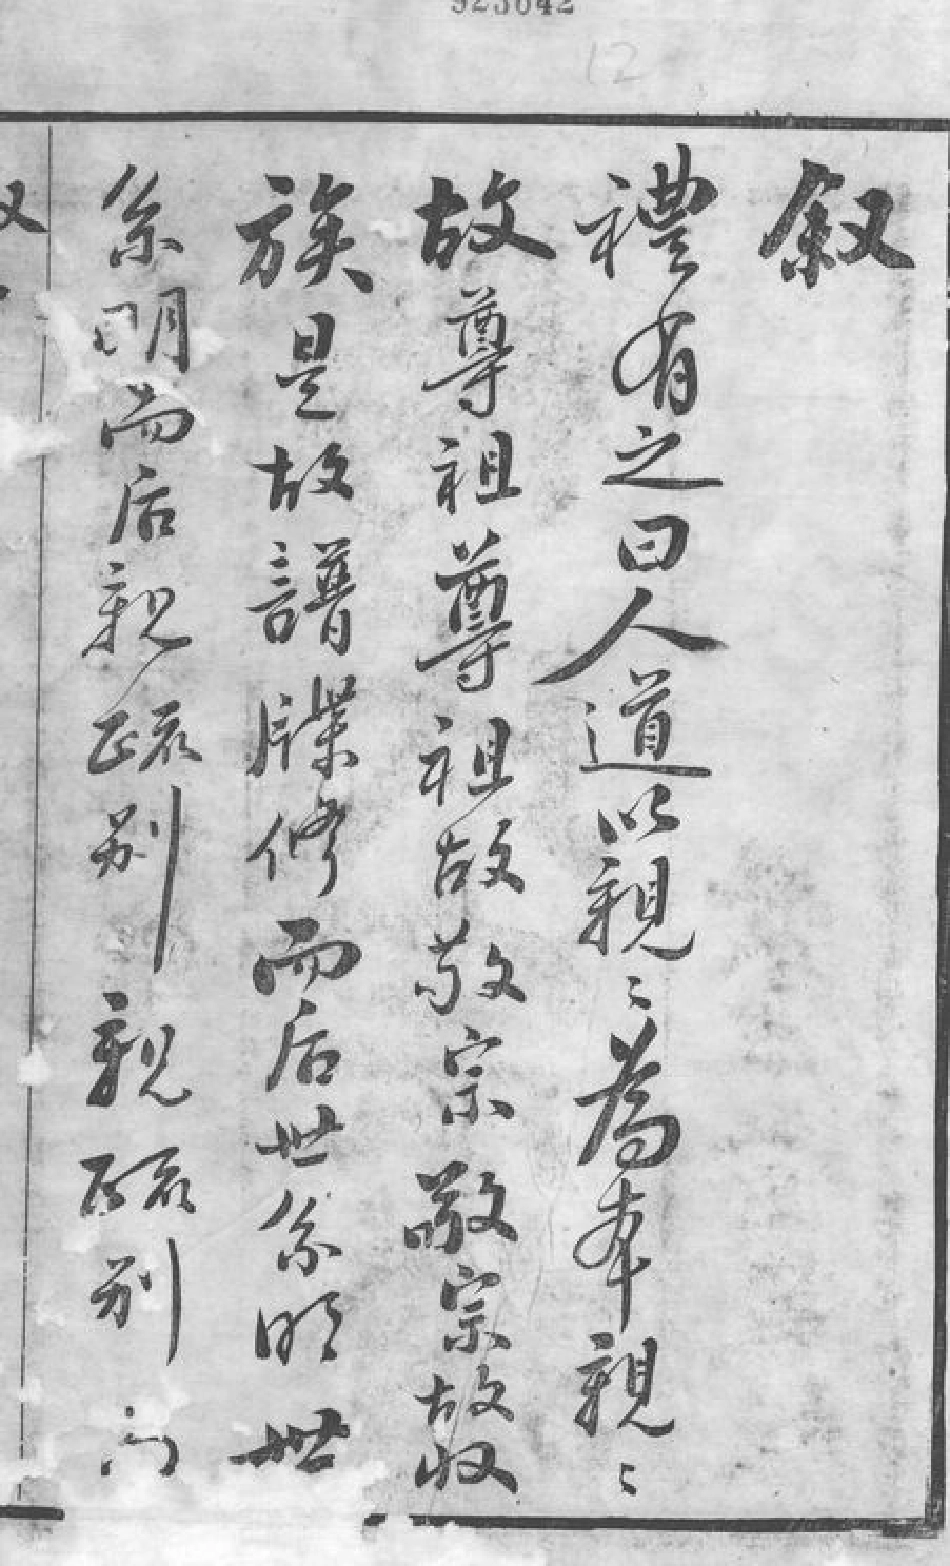 叙
禮有之曰人道以親〻為本親〻
故尊祖尊祖故敬宗敬宗故收
族是故譜牒修而后世系明世
系明而后親疏别親疏别
12